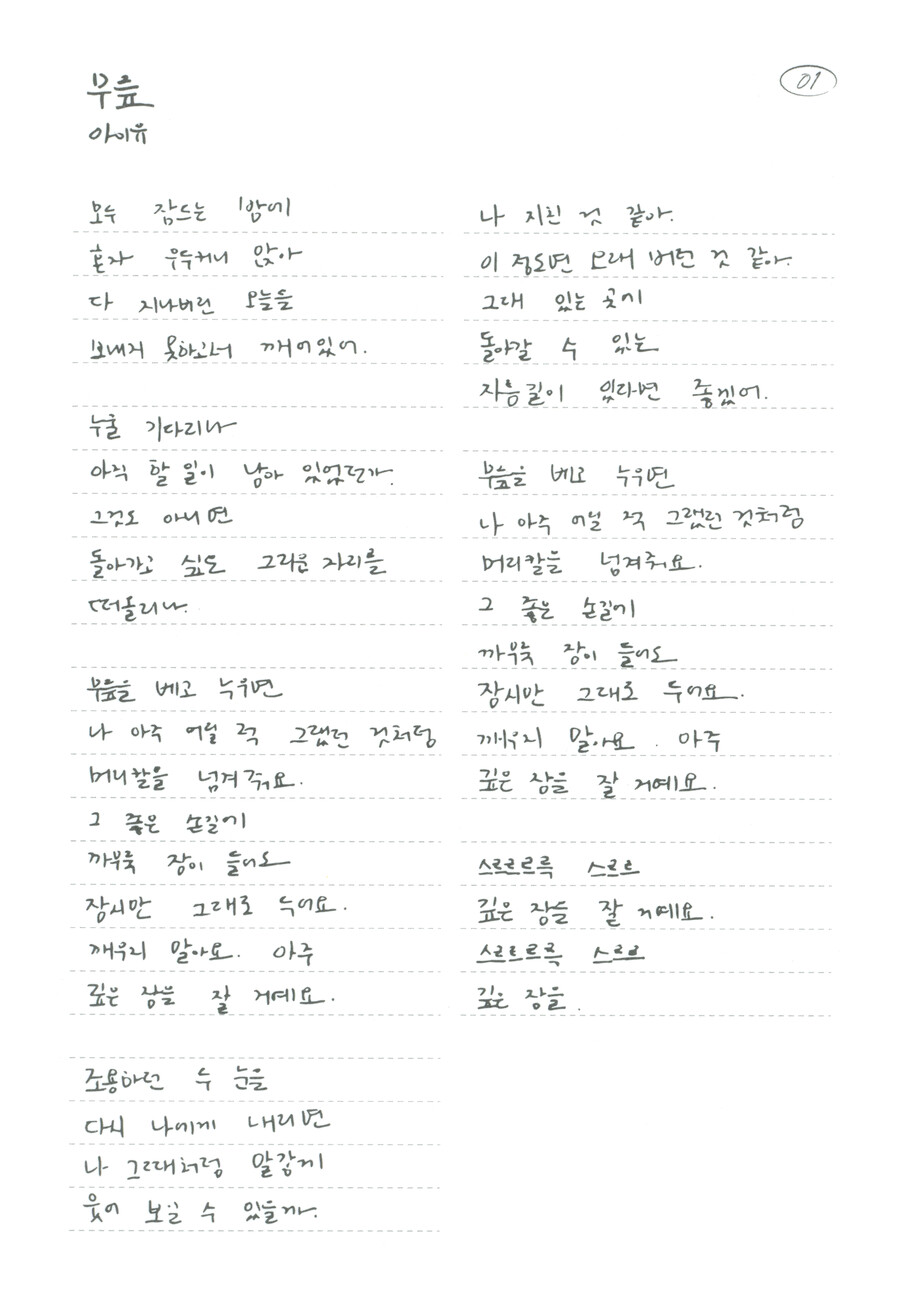 무릎
아이유
01
모두 잠드는 밤에
혼자 우두커니 앉아
다 지나버린 오늘을
보내지 못하고서 깨어있어.
누굴 기다리나
아직 할 일이 남아 있었던가.
그것도 아니면
돌아가고 싶은 그리운 자리를
떠올리나.
무릎을 베고 누우면
나 아주 어릴 적 그랬던 것처럼
머리칼을 넘겨줘요.
그 좋은 손길에
까무룩 잠이 들어도
잠시만 그대로 두어요.
깨우지 말아요. 아주
깊은 잠을 잘 거예요.
조용하던 두 눈을
다시 나에게 내리면
나 그때처럼 말갛게
웃어 보일 수 있을까.
나 지친 것 같아.
이 정도면 오래 버틴 것 같아.
그대 있는 곳에
돌아갈 수 있는
지름길이 있다면 좋겠어.
무릎을 베고 누우면
나 아주 어릴 적 그랬던 것처럼
머리칼을 넘겨줘요.
그 좋은 손길에
까무룩 잠이 들어도
잠시만 그대로 두어요.
깨우지 말아요. 아주
깊은 잠을 잘 거예요.
스르르르륵 스르르
깊은 잠을 잘 거예요.
스르르르륵 스르르
깊은 잠을.